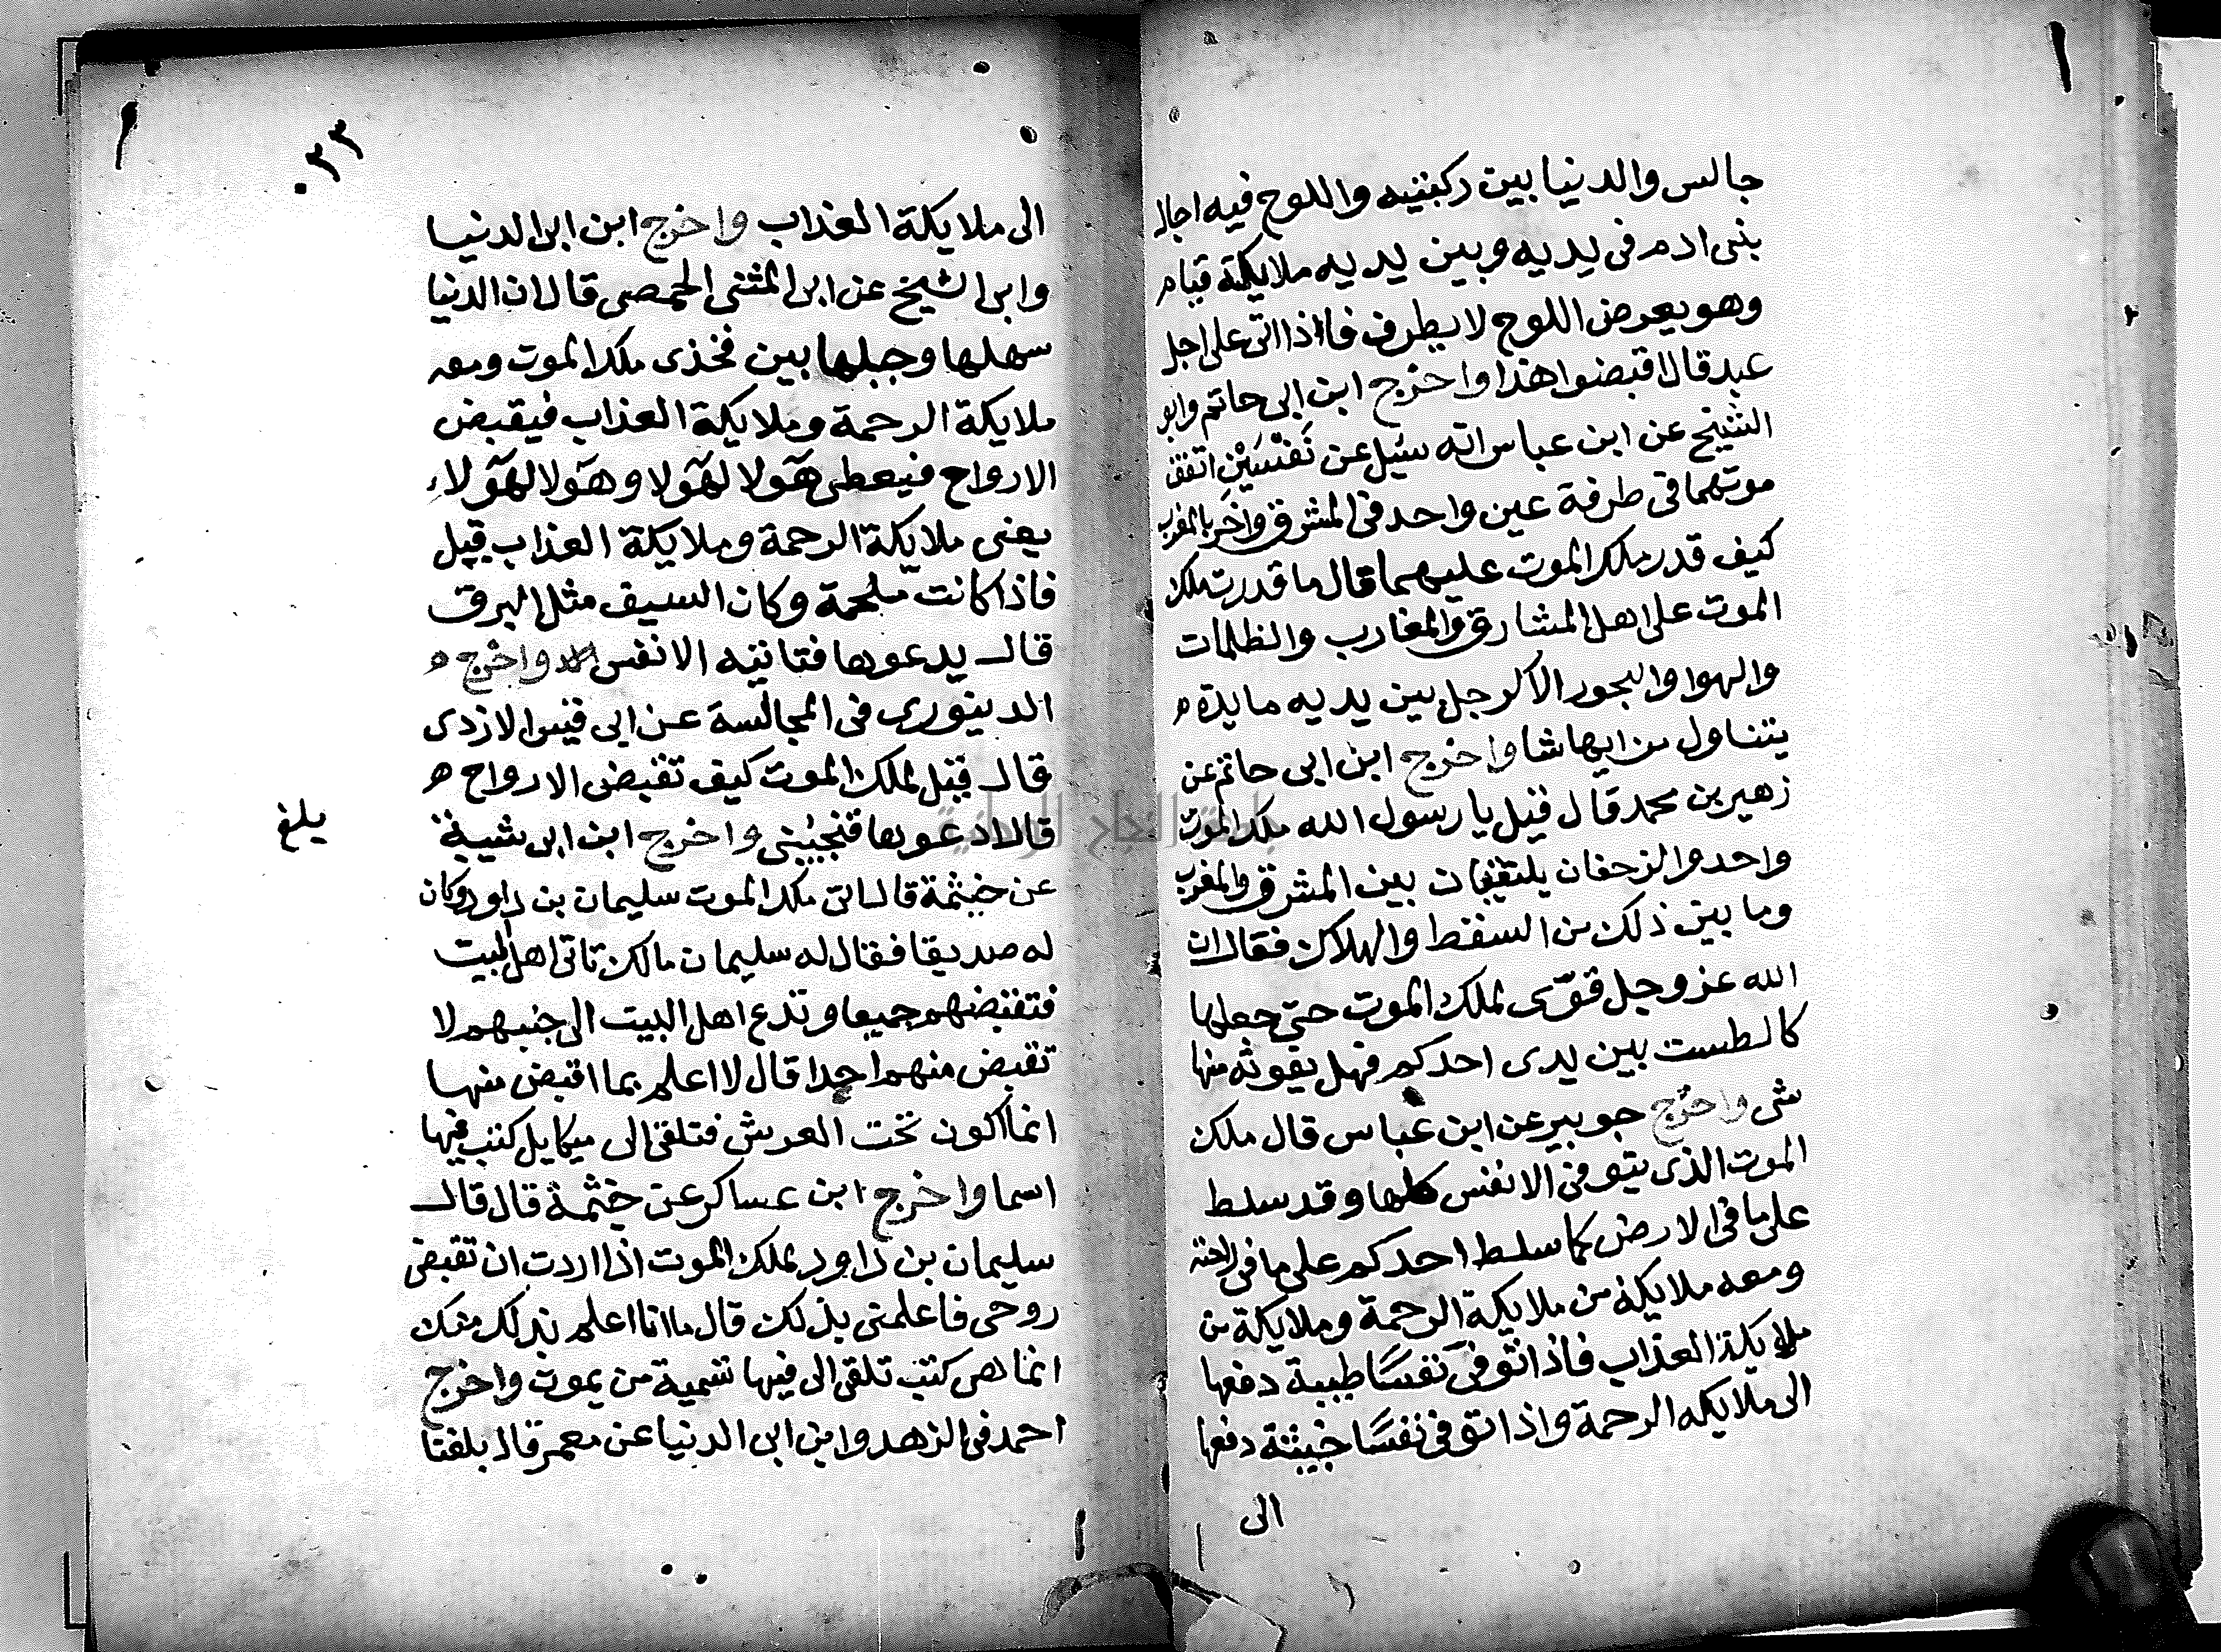 جالس والدنيا بين ركبتيه واللوح فيه اجال
بنى ادم فى يديه وبين يديه ملايكة قيام
وهو يعرض اللوح لا يطرف فاذا اتى على اجل
عبد قال اقبضوا هذا واخرج ابن ابى حاتم وابو
الشيخ عن ابن عباس انه سيل عن نَفْسَيْن اتفق
موتهما فى طرفة عين واحد فى المشرق واخر بالمغرب
كيف قدر ملك الموت عليهما قال ما قدرت ملك
الموت على اهل المشارق والمغارب والظلمات
والهوا والبحور الا كرجل بين يديه مايدة
يتناول من ايها شا واخرج ابن ابى حاتم عن
زهير بن محمد قال قيل يا رسول الله ملك الموت
واحد والزحفان يلتقيان بين المشرق والمغرب
وما بين ذلك من السقط والهلاك فقال ان
الله عز وجل قوّى لملك الموت حتى جعلها
كالطست بين يدى احدكم فهل يفوته منها
شى واخرج جويبر عن ابن عباس قال ملك
الموت الذى يتوفى الانفس كلها وقد سلط
على ما فى الارض كما سلط احدكم على ما فى راحته
ومعه ملايكة من ملايكة الرحمة وملايكة من
ملايكة العذاب فاذا توفى نفسًا طيبة دفعها
الى ملايكه الرحمة واذا توفى نفسًا خبيثة دفعها
الى
٠٣٣
الى ملايكة العذاب واخرج ابن ابى الدنيا
وابو الشيخ عن ابى المثنى الحمصى قال ان الدنيا
سهلها وجبلها بين فخذى ملك الموت ومعه
ملايكة الرحمة وملايكة العذاب فيقبض
الارواح فيعطى هَؤلا لهَؤلا وهَؤلا لهَؤلاء
يعنى ملايكة الرحمة وملايكة العذاب قيل
فاذا كانت ملحمة وكان السيف مثل البرق
قال يدعوها فتاتيه الانفس واخرج
الدينورى فى المجالسة عن ابى قيس الازدى
قال قيل لملك الموت كيف تقبض الارواح
قال ادعوها فتجيبنى واخرج ابن ابى شيبة
بلغ
عن خيثمة قال اتى ملك الموت سليمان بن داود وكان
له صديقا فقال له سليمان مالك تاتى اهل البيت
فتقبضهم جميعا وتدع اهل البيت الى جنبهم لا
تقبض منهم احدا قال لا اعلم بما اقبض منها
انما اكون تحت العرش فتلقى الى ميكايل كتب فيها
اسما واخرج ابن عساكر عن خيثمة قال قال
سليمان بن داود لملك الموت اذا اردت ان تقبض
روحى فاعلمنى بذلك قال ما انا اعلم بذلك منك
انما هى كتب تلقى الى فيها تسمية من يموت واخرج
احمد فى الزهد وابن ابى الدنيا عن معمر قال بلغنا